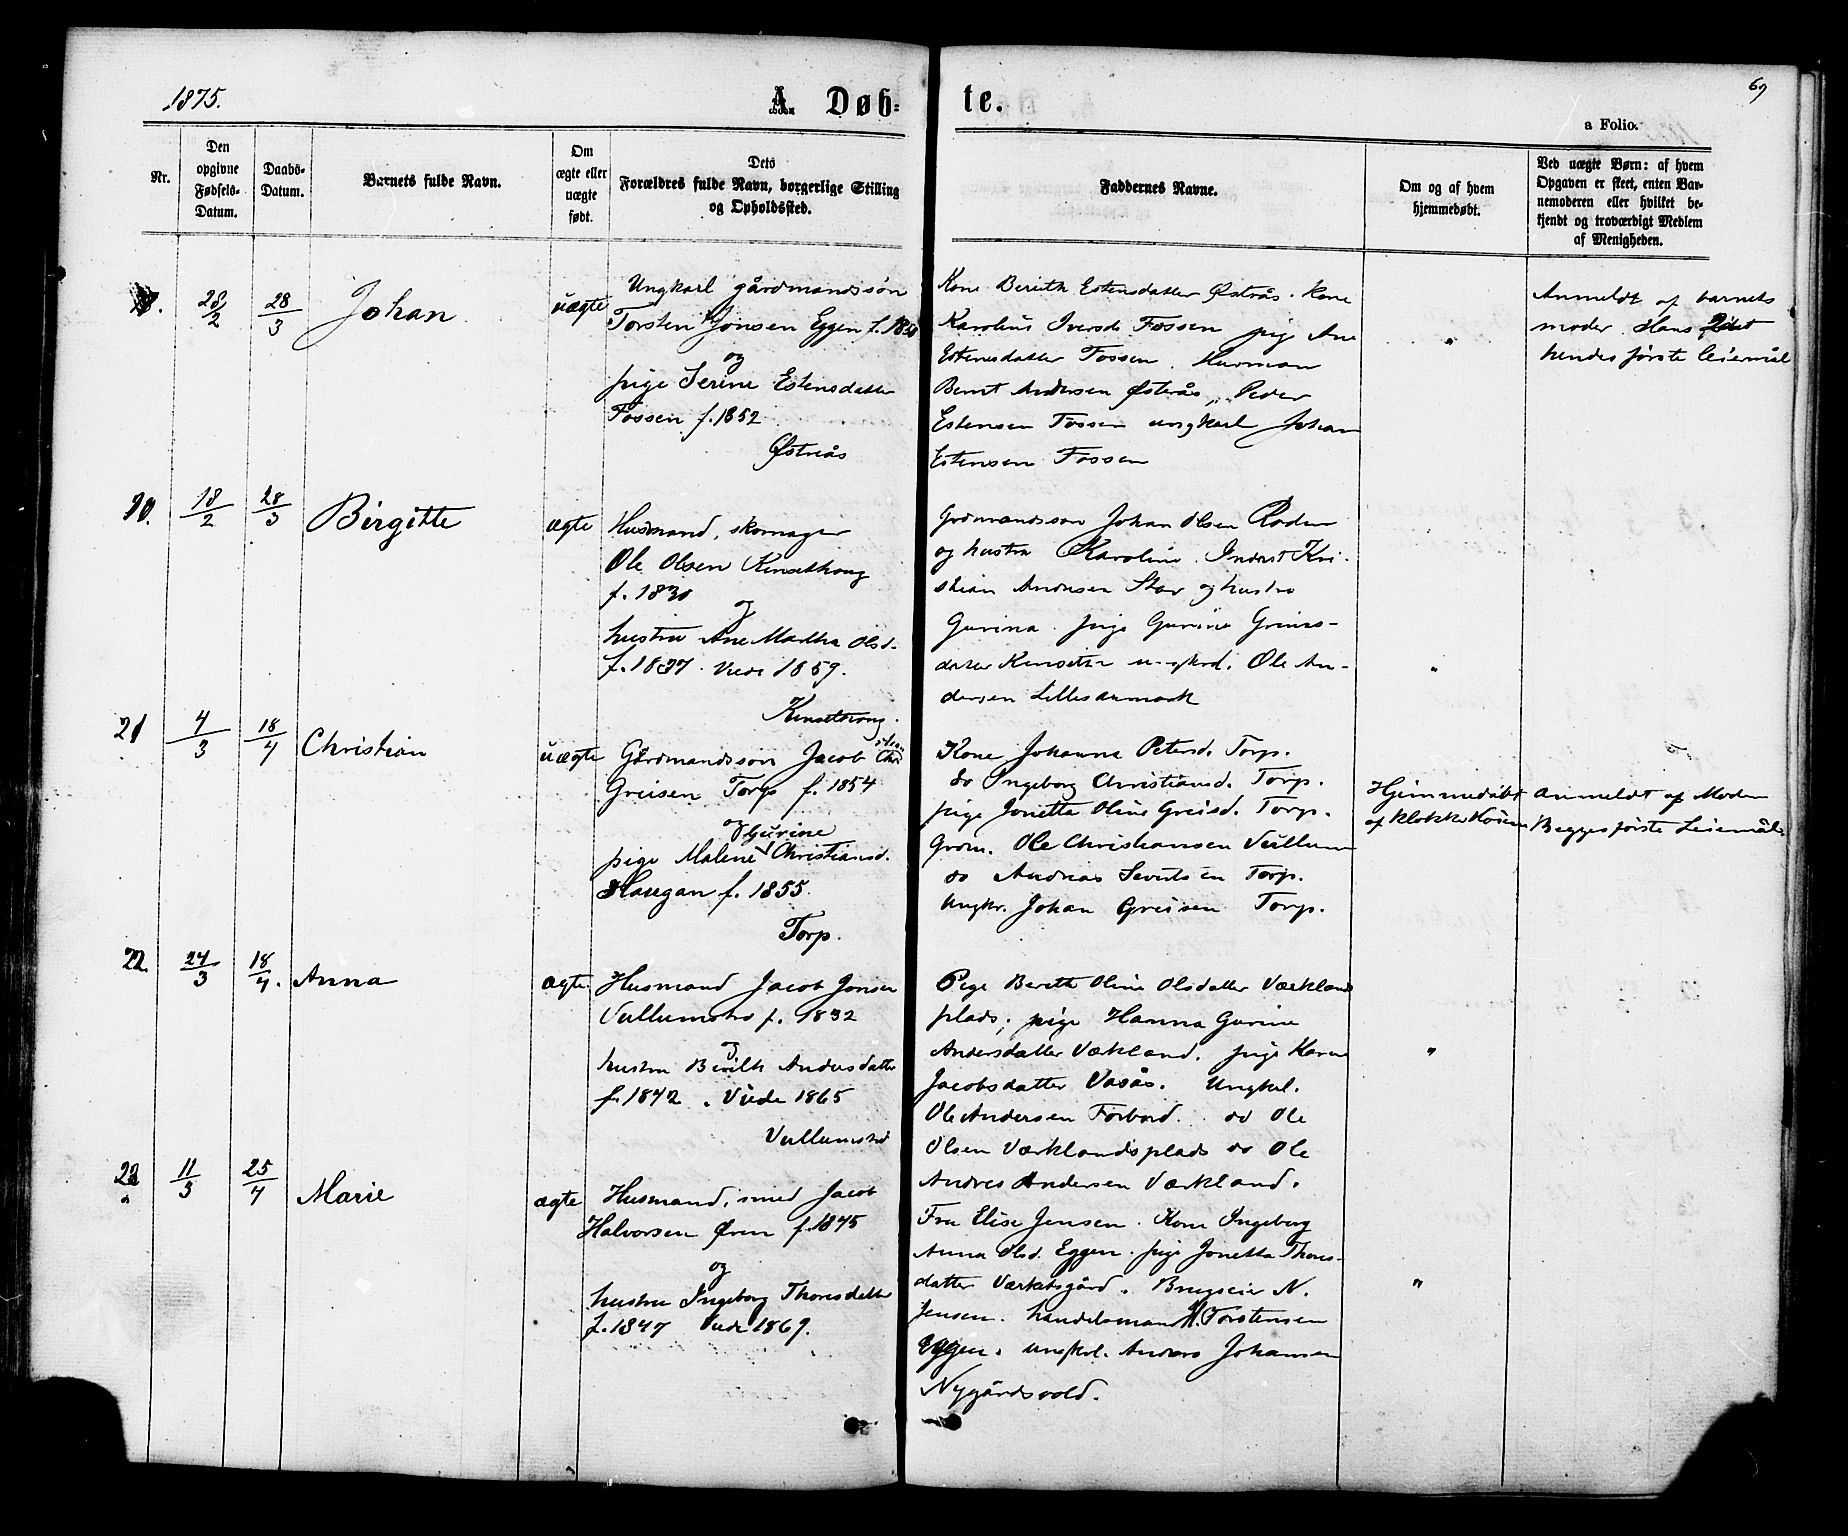 1875.
A. Døb-
te.
69
a Folio.
Nr.
Den
opgivne
Fødsels-
Datum.
Daabs-
Datum.
Barnets fulde Navn.
Om
ægte eller
uægte
født.
Dets
Forældres fulde Navn, borgerlige Stilling
og Opholdssted.
Faddernes Navne.
Om og af hvem
hjemmedøbt.
Ved uægte Børn: af hvem
Opgaven er skeet, enten Bar-
nemoderen eller hvilket be-
kjendt og troværdigt Medlem
af Menigheden.
28/2
28/3
Johan
uægte
Ungkarl gårdmandssøn
Torsten Jonsen Eggen f.
og
pige Serine Estensdatter
Fossen f. 1852
Østreås
Kone Berith Estensdatter Østrås. kone
Karolius Iversd. Fossen pige Ane
Estensdatter Fossen. Husman
Bernt Andersen Østerås, Peder
Estensen Fossen ungkarl Johan
Estensen Fossen
"
Anmeldt af barnets
moder. Hans
hendes første leiemål
18/2
28/3
Birgitte
ægte
Husmand, skomager
Ole Olsen Kinsethaug
f. 1830
og
hustru Ane Martha Olsd.
f. 1837. Viede 1859.
Kinsethaug.
Grdmandssøn Johan Olsen
og hustru Karoline. Inderst Kri-
stian Andersen Stav og hustru
Gurina. pige Gurine Griis-
datter Kinseth ungkrl. Ole An-
dersen Lillesanmark
"
21
4/3
18/4
Christian
uægte
Gårdmandssøn Jacob
Greisen Torp f. 1854
og
Gurine
pige Malene Christiansd.
Haugan f. 1855.
Torp.
Kone Johanna Petersd. Torp.
do Ingeborg Christiansd. Torp.
pige Jonetta Oline Greisd. Torp.
Grdm. Ole Christiansen Vullum
do Andreas Sevuts en Torp.
Ungkr. Johan Greisen Torp.
Hjemmedøbt
af klokker
Anmeldt af Moder
Begges første Leiemål
22
24/3
18/4.
Anna
ægte.
Husmand Jacob Jonsen
Vullumstrø f. 1832
og
hustru Berith Andersdatter
f. 1842. Viede 1865
Vullumstrø
Pige Bereth Oline Olsdatter Værklands
plads, pige Hanna Gurine
Andersdatter Værkland. pige Karen
Jacobsdatter Vasås. Ungkrl.
Ole Andersen Forbord. do Ole
Olsen Værklandsplads do Ole
Andres Andersen Værkland.
"
11/3
25/4
Marie
ægte
Husmand, smed Jacob
Halvorsen Øren f. 1845
og
hustru Ingeborg Thoresdatter
f. 1847 Viede 1869.
Fru Elise Jensen. Kone Ingeborg
Anna Olsd. Eggen. pige Jonetta Thores-
datter Værketsgård. Brugseier N.
Jensen. handelsmand Torstensen
Eggen. ungkrl. Anders Johansen
Nygårdsvold.
"